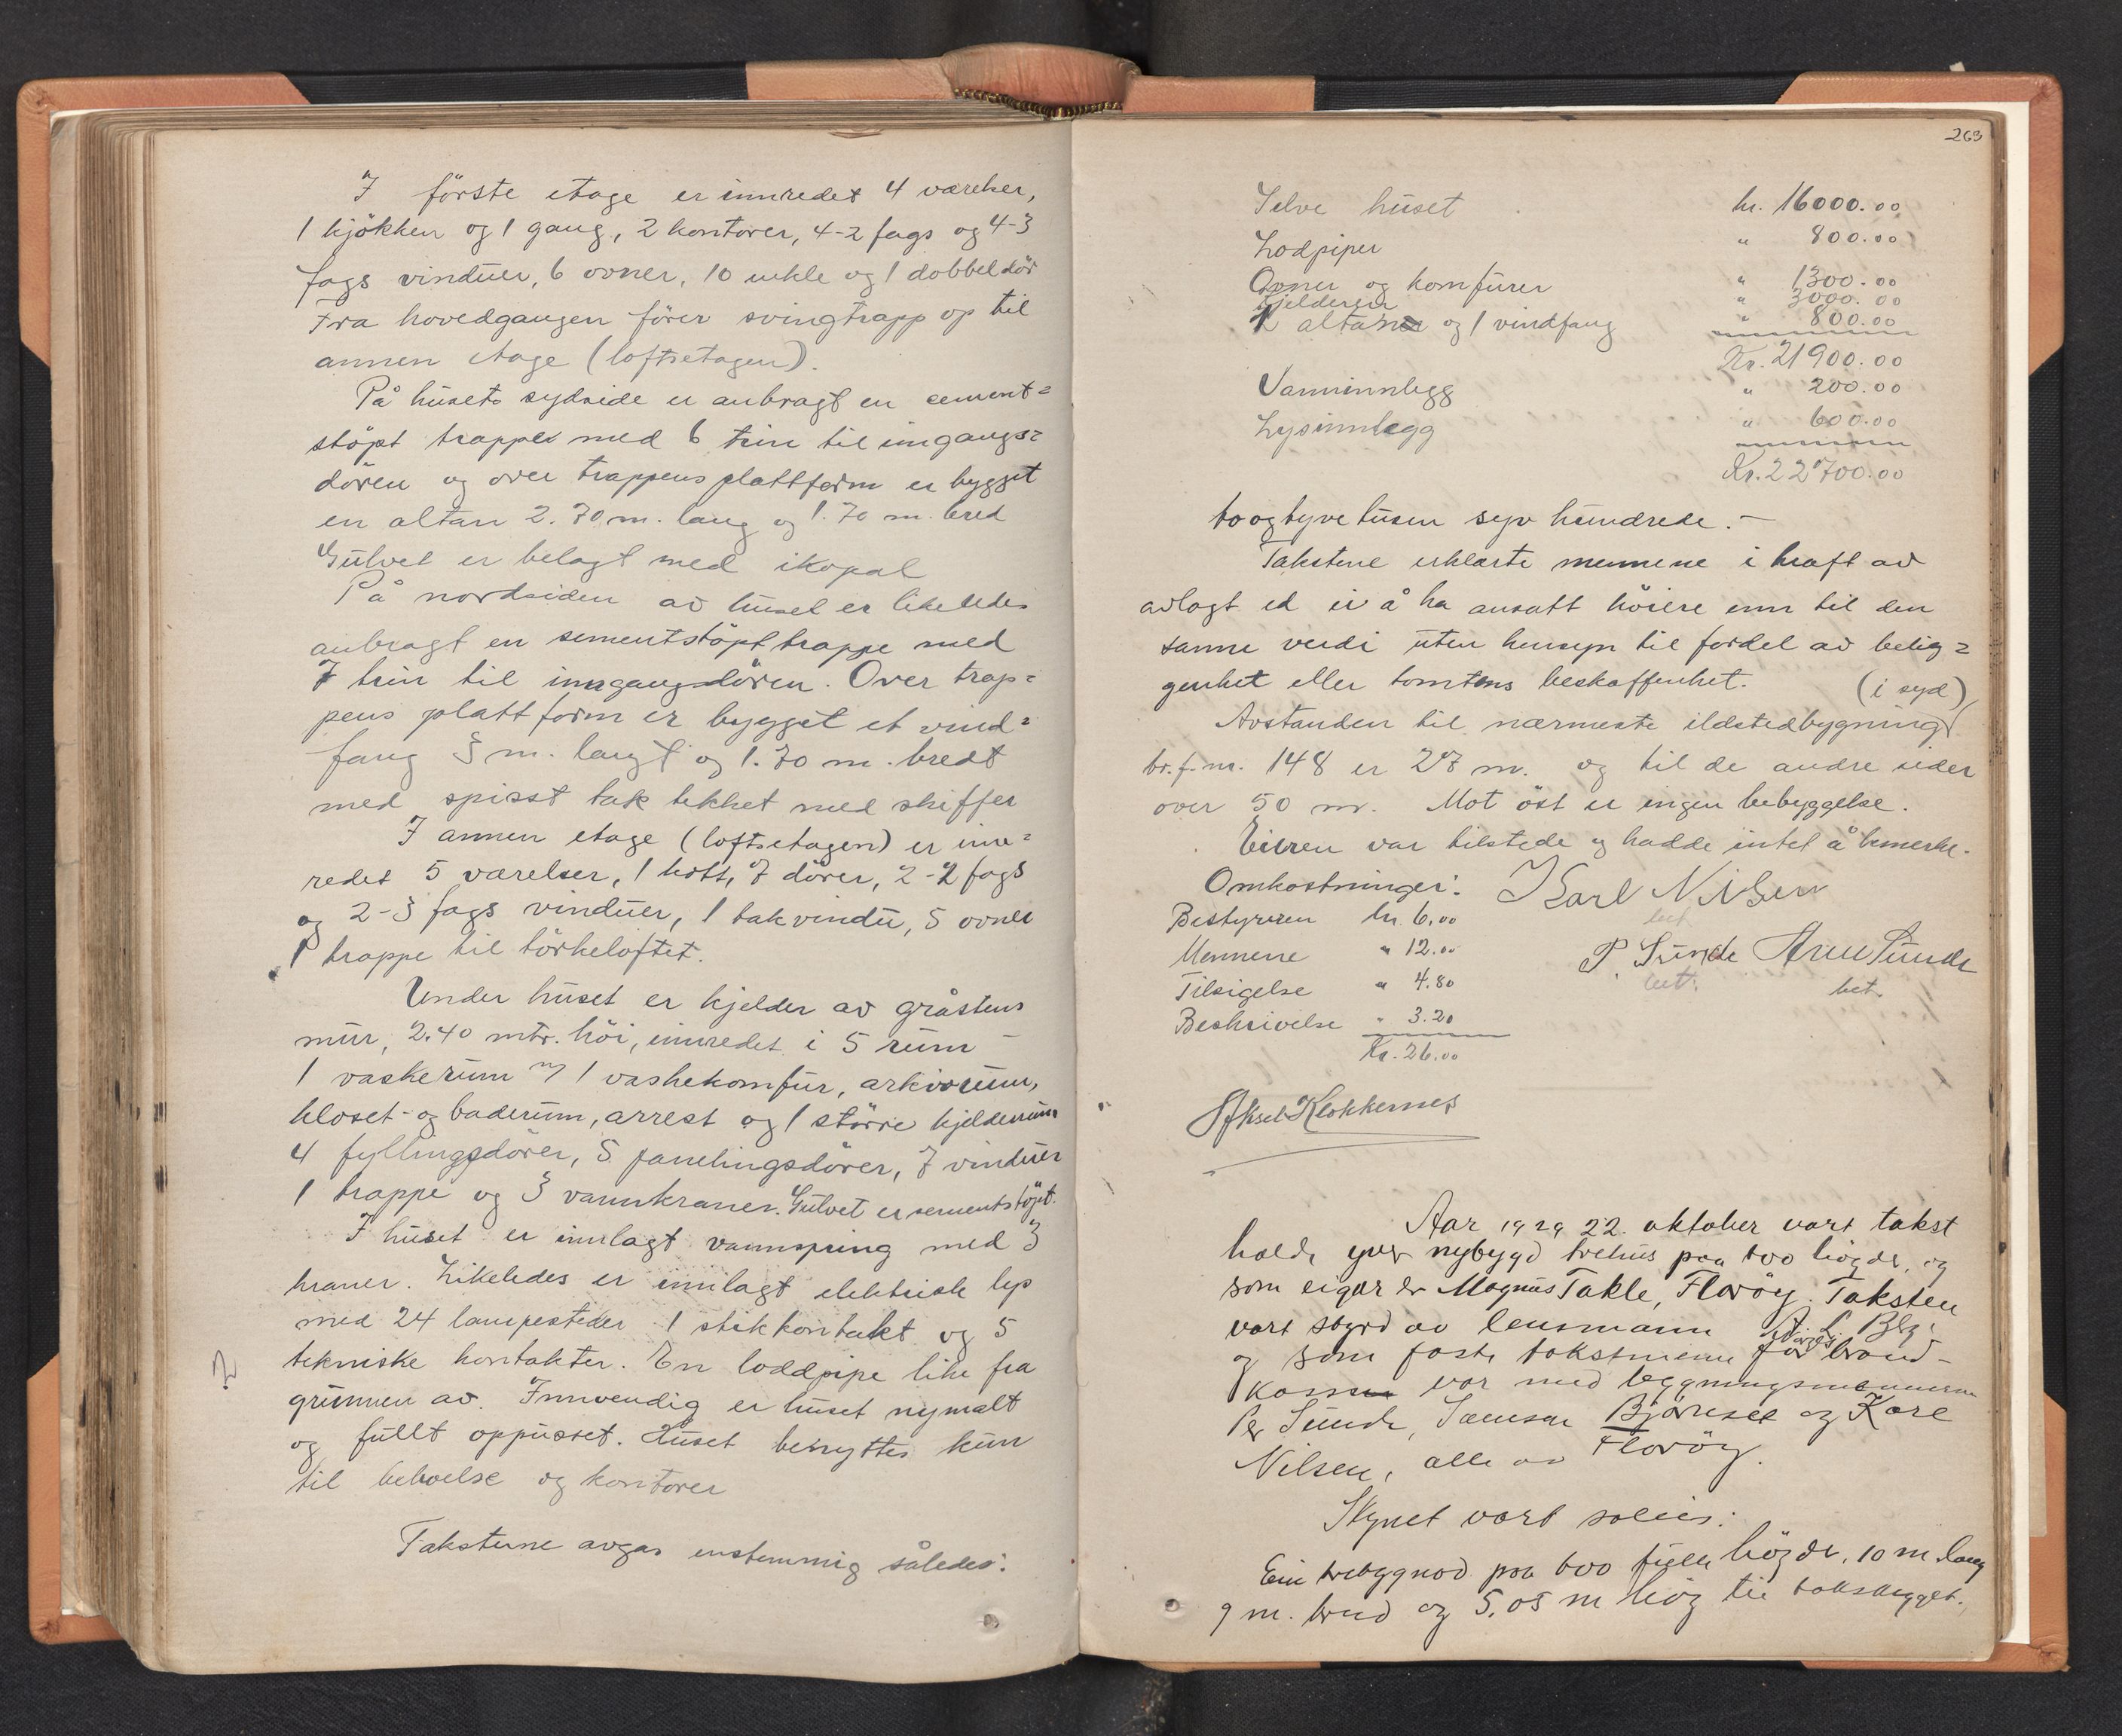 I förste etage er innredet 4 værelser,
1 kjökken og 1 gang, 2 kontorer, 4-2 fags og 4-3
fags vinduer, 6 ovner, 10 enkle og 1 dobbel dör
Fra hovedgangen förer svingtrapp op til
annen etage (loftsetagen).
På husets sydside er anbragt en cement=
stöpt trappe med 6 trin til inngangs=
dören og over trappens plattform er bygget
en altan 2.70 m. lang og 1.70 m. bred
Gulvet er belagt med ikopal
På nordsiden av huset er likeledes
anbragt en sementstöpt trappe med
7 trin til inngangsdören. Over trap=
pens plattform er bygget et vind=
fang 3 m. langt og 1.70 m. bredt
med spisst tak tekket med skiffer
I annen etage (loftsetagen) er inn=
redet 5 værelser, 1 kott, 7 dörer, 2-2 fags
og 2-3 fags vinduer, 1 takvindu, 5 ovner
1 trappe til törkeloftet.
Under huset er kjelder av gråstens
mur, 2.40 mtr. höi, innredet i 5 rum -
1 vaskerum m/ 1 vaskekomfur, arkivrum,
kloset- og baderum, arrest og 1 större kjelderrum
4 fyllingsdörer, 5 panelingsdörer, 7 vinduer
1 trappe og 3 vannkraner. Gulvet er sementstöpt.
I huset er innlagt vannspring med 3
kraner. Likeledes er innlagt elektrisk lys
med 24 lampesteder 1 stikkontakt og 5
tekniske kontakter. En loddpipe like fra
grunnen av. Innvendig er huset nymalt
og fullt oppusset. Huset benyttes kun
til beboelse og kontorer
Taksterne avgas enstemmig således:
263
Selve huset kr. 16000.00
Lodpiper " 800.00
Ovner og komfurer " 1300.00
Kjelderen " 3000.00
1 altan og 1 vindfang " 800.00
Kr. 21900.00
Vanninnlegg " 200.00
Lysinnlegg " 600.00
Kr. 22700.00
toogtyvetusen syv hundrede.-
Takstene erklærte mennene i kraft av
avlagt ed ei å ha ansatt höiere enn til den
sanne verdi uten hensyn til fordel av belig=
genhet eller tomtens beskaffenhet.
(i syd)
Avstanden til nærmeste ildstedbygning
br.f.nr. 148 er 27 m. og til de andre sider
over 50 m. Mot öst er ingen bebyggelse.
Eieren var tilstede og hadde intet å bemerke.
Omkostninger: Karl Nilsen
Bestyreren kr. 6.00 bet
Mennene " 12.00 P. Sunde Arne Sunde
Tilsigelse " 4.80 bet. bet.
Beskrivelse " 3.20
Kr. 26.00
Aksel Klokkernes
Aar 1929 22. oktober vart takst
haldt yver nybygd trehus paa too högder, og
som eigar er Magnus Takle, Floröy. Taksten
vart styrd av lensmann
og som faste takstmenn for brand-
kassen var med bygningsmennene
Per Sunde, Samson Björnset og Karl
Nilsen, alle av Floröy.
Skynet vart soleis:
Ein trebygnad paa too fulle högder, 10 m. lang
9 m. breid og 5,05 m hög til takskjegget.